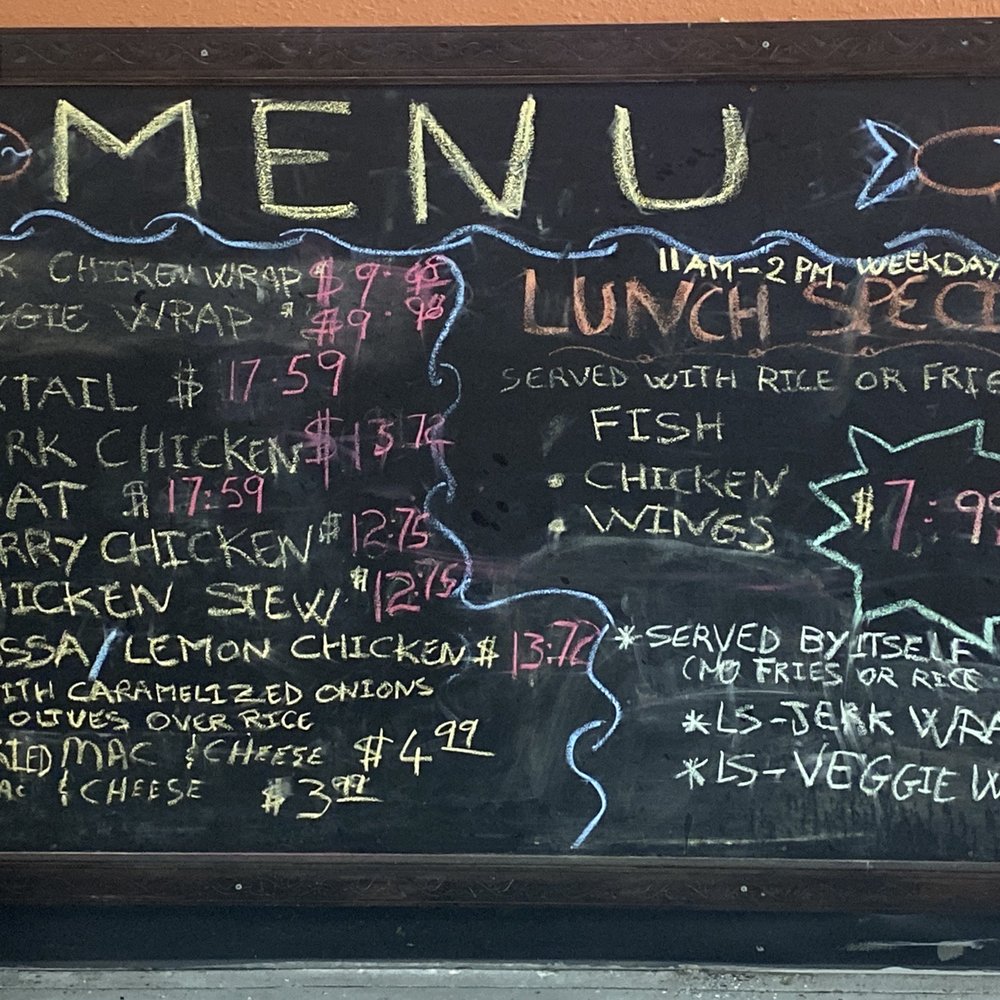 MENU
K CHICKEN WRAP $9.98
GGIE WRAP $9.98
TAIL $17.59
RK CHICKEN $13.72
OAT $17.59
RRY CHICKEN $12.75
HICKEN STEW $12.75
SSA/LEMON CHICKEN $13.72
ITH CARAMELIZED ONIONS
OLIVES OVER RICE
MAC & CHEESE $4.99
AC & CHEESE $3.99
11AM-2PM WEEKDAY
LUNCH SPECI
SERVED WITH RICE OR FRIE
FISH
• CHICKEN
• WINGS
$7.99
*SERVED BY ITSELF
(NO FRIES OR RICE
*LS-JERK WRA
*LS-VEGGIE W